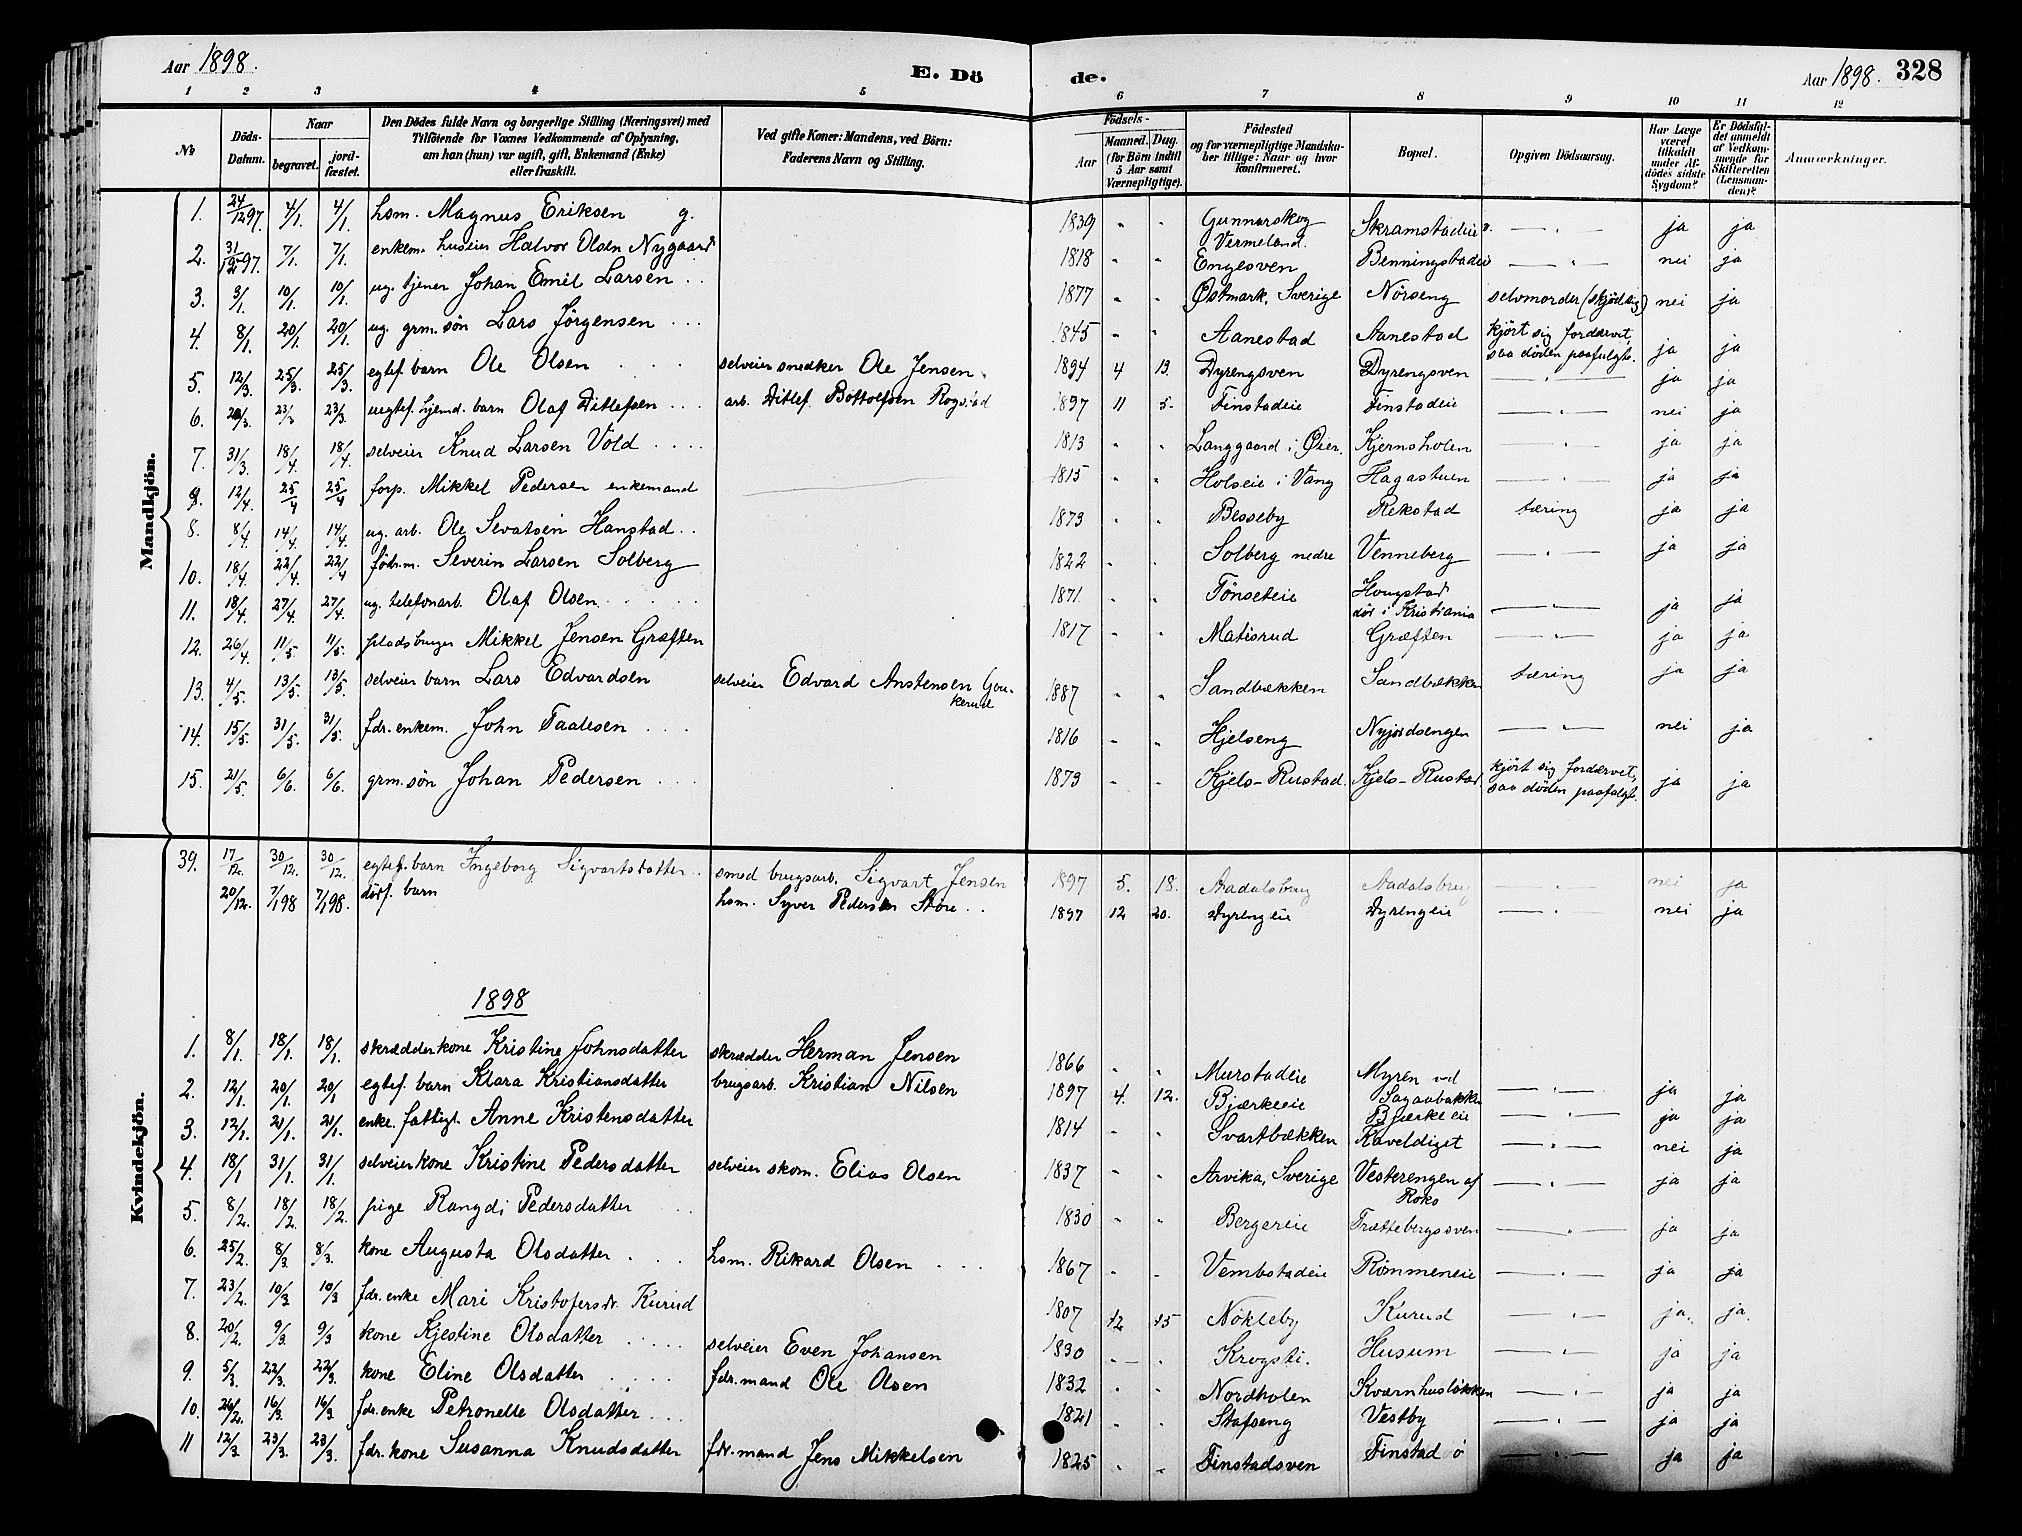 Aar 1898.
E. Dö
de.
Aar 1898. 328
1 2 3 4 5 6 7 8 9 10 11 12
No Döds-Datum. Naar begravet. jord-fæstet.
Den Dödes fulde Navn og borgerlige Stilling (Næringsvei) med
Tilföiende for Voxnes Vedkommende af Oplysning,
om han (hun) var ugift, gift, Enkemand (Enke)
eller fraskilt.
Ved gifte Koner: Mandens, ved Börn:
Faderens Navn og Stilling.
Födsels-
Aar Maaned. Dag. (for Börn indtil 5 Aar samt Værnepligtige).
Födested og for værnepligtige Mandskaber tillige: Naar og hvor konfirmeret.
Bopæl.
Opgiven Dödsaarsag.
Har Læge været tilkaldt under Afdödes sidste Sygdom?
Er Dödsfaldet anmeldt af Vedkommende for Skifteretten (Lensmanden)?
Anmærkninger.
Mandkjön.
1. 24/12 97. 4/1. 4/1. hsm. Magnus Eriksen g. 1839 " " Gunnarskog Vermeland. Skramstadeie — " — ja ja
2. 31/12 97. 7/1. 7/1. enkem. huseier Halvor Olsen Nygaard 1818 " " Engesven Benningstadeie — " — nei ja
3. 3/1. 10/1. 10/1. ug. tjener Johan Emil Larsen 1877 " " Østmark, Sverige Nörseng selvmorder (skjöd sig) nei ja
4. 8/1. 20/1. 20/1. ug. grm. sön Lars Jörgensen 1845 " " Aanestad Aanestad kjört sig fordærvet, saa döden paafulgte. ja ja
5. 12/3. 25/3. 25/3. egtef. barn Ole Olsen selveier snedker Ole Jensen 1894 4 13. Dyrengsven Dyrengsven — " — ja ja
6. 20/3. 23/3 23/3. uegtef. hjemd. barn Olaf Ditlefsen arb. Ditlef Bottolfsen Rogstad 1897 11 5. Finstadeie Finstadeie — " — nei ja
7. 31/3. 18/4. 18/4. selveier Knud Larsen Vold 1813 " " Langgaard i Øier. Kjernsholen — " — ja ja
9. 12/4. 25/4 25/4 forp. Mikkel Pedersen enkemand 1815 " " Holseie i Vang Hagastuen — " — ja ja
8. 8/4. 14/4. 14/4. ug. arb. Ole Sevatsen Hanstad 1873 " " Besseby Rekstad tæring ja ja
10. 18/4. 22/4. 22/4 födrm. Severin Larsen Solberg 1822 " " Solberg nedre Venneberg — " — ja ja
11. 18/4. 27/4. 27/4. ug. telefonarb. Olaf Olsen 1871 " " Tönseteie Hougstad död i Kristiania — " — ja ja
12. 26/4. 11/5. 11/5. pladsbruger Mikkel Jensen Græften 1817 " " Matisrud Græften — " — ja ja
13. 4/5. 13/5. 13/5. selveier barn Lars Edvardsen selveier Edvard Anstensen Gou-kerud 1887 " " Sandbækken Sandbækken tæring ja ja
14. 15/5. 31/5. 31/5. fdr. enkem. John Taalesen 1816 " " Hjelseng Nyjordsengen — " — nei ja
15. 21/5. 6/6. 6/6. grm. sön Johan Pedersen 1873 " " Kjels-Rustad Kjels-Rustad kjört sig fordærvet, saa döden paafulgte. ja ja
39. 17/12. 30/12. 30/12. egtef. barn Ingeborg Sigvartsdatter smed brugsarb. Sigvart Jensen 1897 5. 18. Aadalsbrug Aadalsbrug — " — nei ja
20/12. 7/1 98 7/1 98. dödf. barn hsm. Syver Pedersen Store 1897 12 20. Dyrengeie Dyrengeie — " — nei ja
1898
Kvindekjön.
1. 8/1. 18/1. 18/1. skrædderkone Kristine Johnsdatter skrædder Herman Jensen 1866 " " Murstadeie Myren ved Sagaabakken — " — ja ja
2. 12/1. 20/1. 20/1 egtef. barn Klara Kristiansdatter brugsarb. Kristian Nilsen 1897 4. 12. Bjærkeeie Bjærkeeie — " — ja ja
3. 12/1. 21/1. 21/1. enke. fattigl. Anne Kristensdatter 1814 " " Svartbækken Kaveldiget — " — nei ja
4. 18/1 31/1. 31/1. selveierkone Kristine Pedersdatter selveier skom. Elias Olsen 1837 " " Arvika, Sverige Vesterengen af Roko — " — ja ja
5. 8/2. 18/2. 18/2. pige Rangdi Pedersdatter 1830 " " Bergereie Trættebergsven — " — ja ja
6. 25/2. 8/3. 8/3. kone Augusta Olsdatter hsm. Rikard Olsen 1867 " " Vembstadeie Römmeneie — " — ja ja
7. 23/2. 10/3. 10/3 fdr. enke Mari Kristofersdr. Kurud 1807 12 15 Nökleby Kurud — " — ja. ja.
8. 20/2. 9/3. 9/3 kone Kjestine Olsdatter selveier Even Johansen 1830 " " Krogsti. Husum — " — ja ja
9. 5/3. 22/3. 22/3. kone Eline Olsdatter fdr. mand Ole Olsen 1832 " " Nordholen Kværnhuslökken — " — ja ja
10. 26/2. 16/3. 16/3. fdr. enke Petronelle Olsdatter 1821 " " Stafseng Vestby — " — ja ja
11 12/3. 23/3. 23/3. fdr. kone Susanna Knudsdatter fdr. mand Jens Mikkelsen 1825 " " Finstadsven Finstad ö — " — ja ja